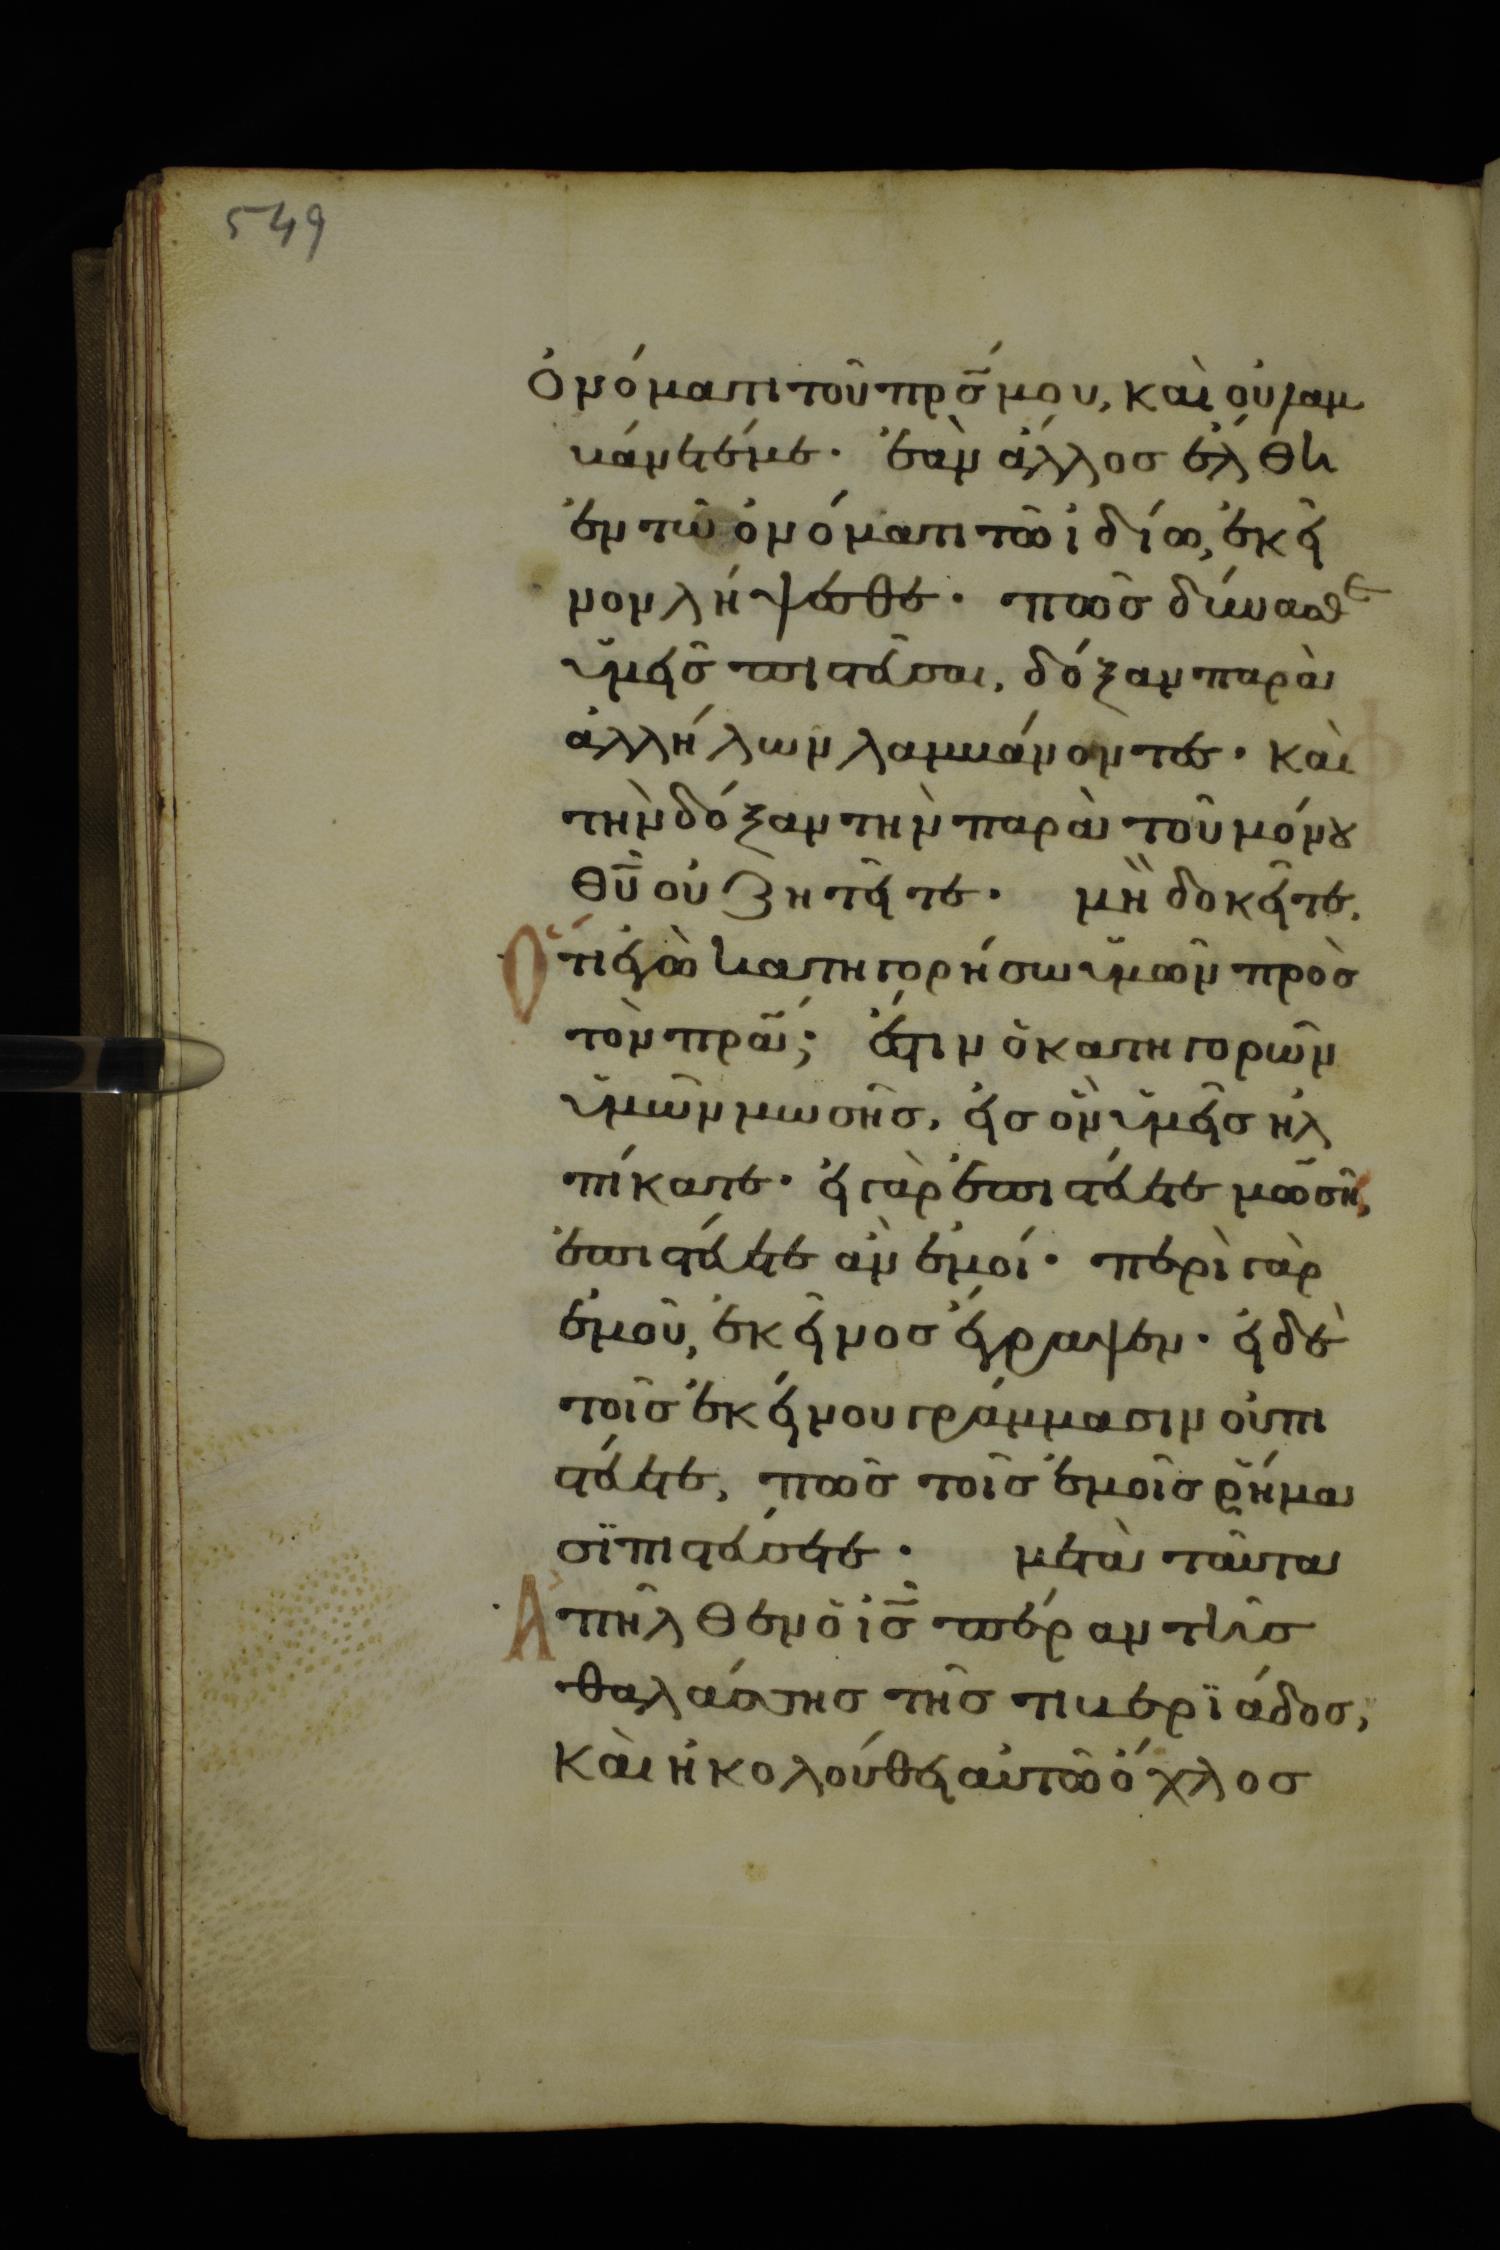 549
ὀνόματι τοῦ πρ̅σ μου, καὶ οὐ λαμ
βάνετέ με· ἐὰν ἄλλος ἔλθη
ἐν τῶ ὀνόματι τῶ ἰδίω, ἐκεῖ
νον λήψεσθε· πῶς δύνασθε
ὑμεῖς πιστεῦσαι, δόξαν παρὰ
ἀλλήλων λαμβάνοντες· καὶ
τὴν δόξαν τὴν παρὰ τοῦ μόνου
θ̅υ οὐ ζητεῖτε· μὴ δοκεῖτε,
Ὅτι ἐγὼ κατηγορήσω ὑμῶν πρὸς
τὸν π̅ρα; ἔστιν ὁ κατηγορῶν
ὑμῶν μωσῆς, εἰς ὃν ὑμεῖς ἠλ
πίκατε· εἰ γὰρ ἐπιστεύετε μωσῆ,
ἐπιστεύετε ἂν ἐμοί· περὶ γὰρ
ἐμοῦ, ἐκεῖνος ἔγραψεν· εἰ δὲ
τοῖς ἐκείνου γράμμασιν οὐ πι
στεύετε, πῶς τοῖς ἐμοῖς ῥήμα
σϊ πιστεύσετε· μετὰ ταῦτα
Ἀπῆλθεν ὁ ι̅ς πέραν τῆς
θαλάσσης τῆς τιβερϊάδος,
καὶ ἠκολούθει αὐτῶ ὄχλος